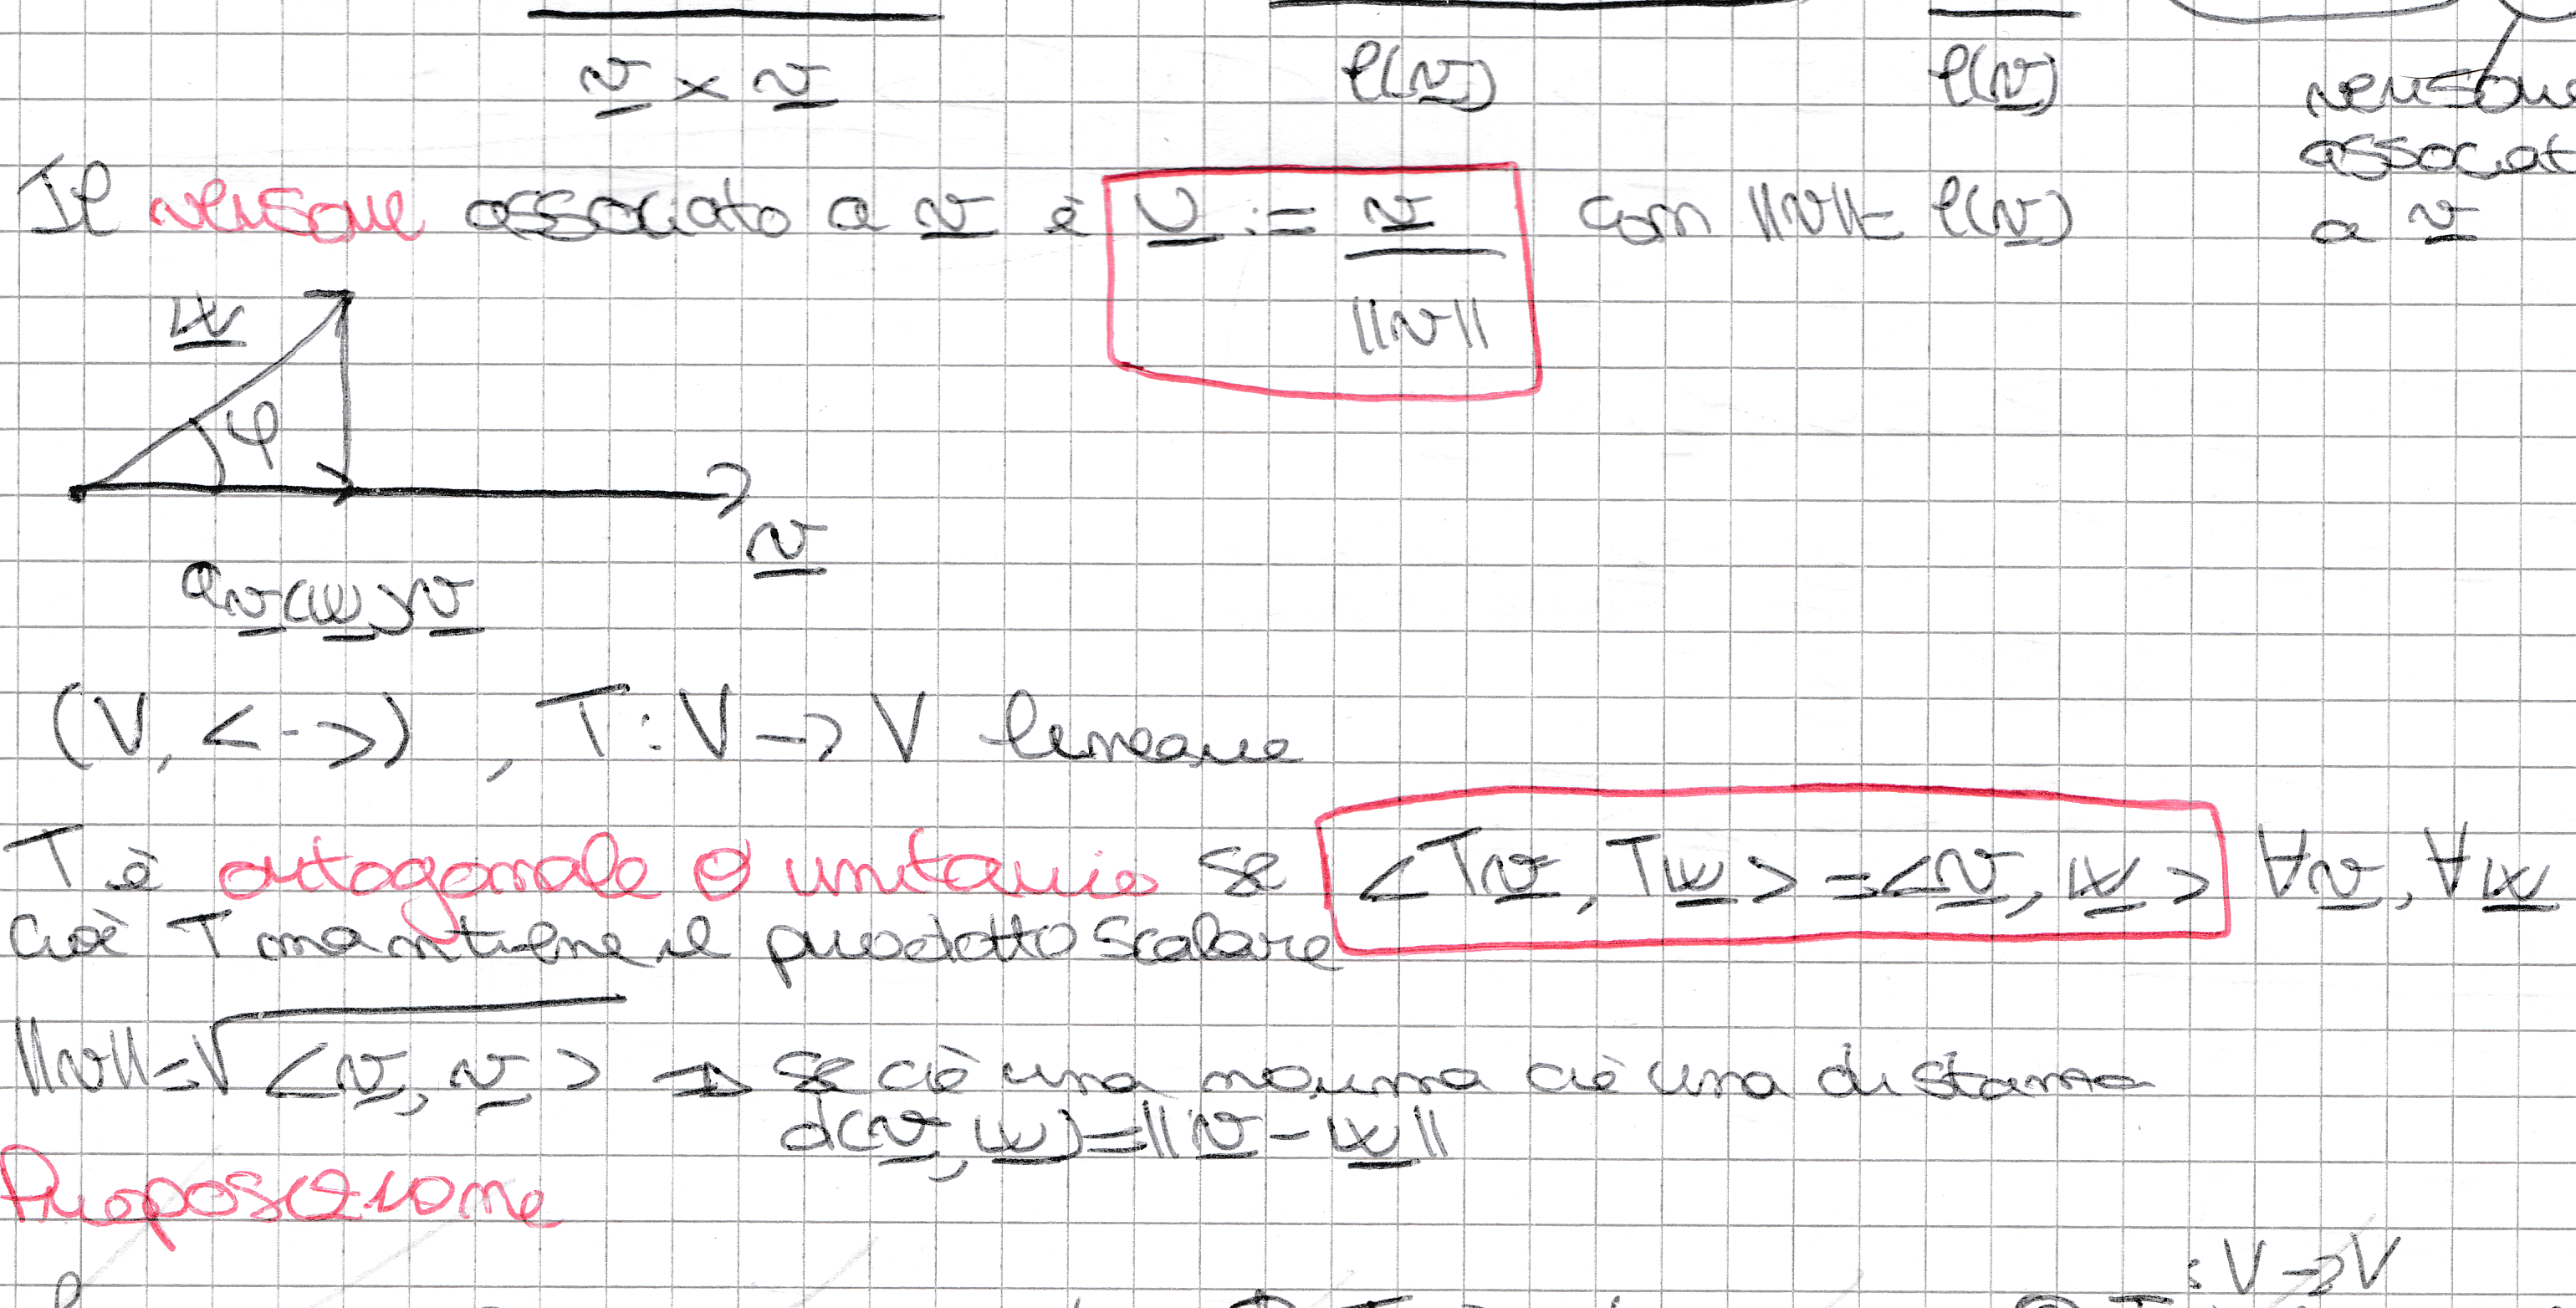 v × v ℓ(v) ℓ(v) versore
associat
Il versore associato a v è υ := v / ||v|| con ||v|| = ℓ(v) a v
w
φ
v
a_v(w) v
(V, <·>) , T: V → V lineare
T è ortogonale o unitario se <Tv, Tw> = <v, w> ∀v, ∀w
Cioè T mantiene il prodotto scalare
||v|| = √<v, v> ⇒ se c'è una norma c'è una distanza
d(v, w) = ||v - w||
Proposizione
: V → V